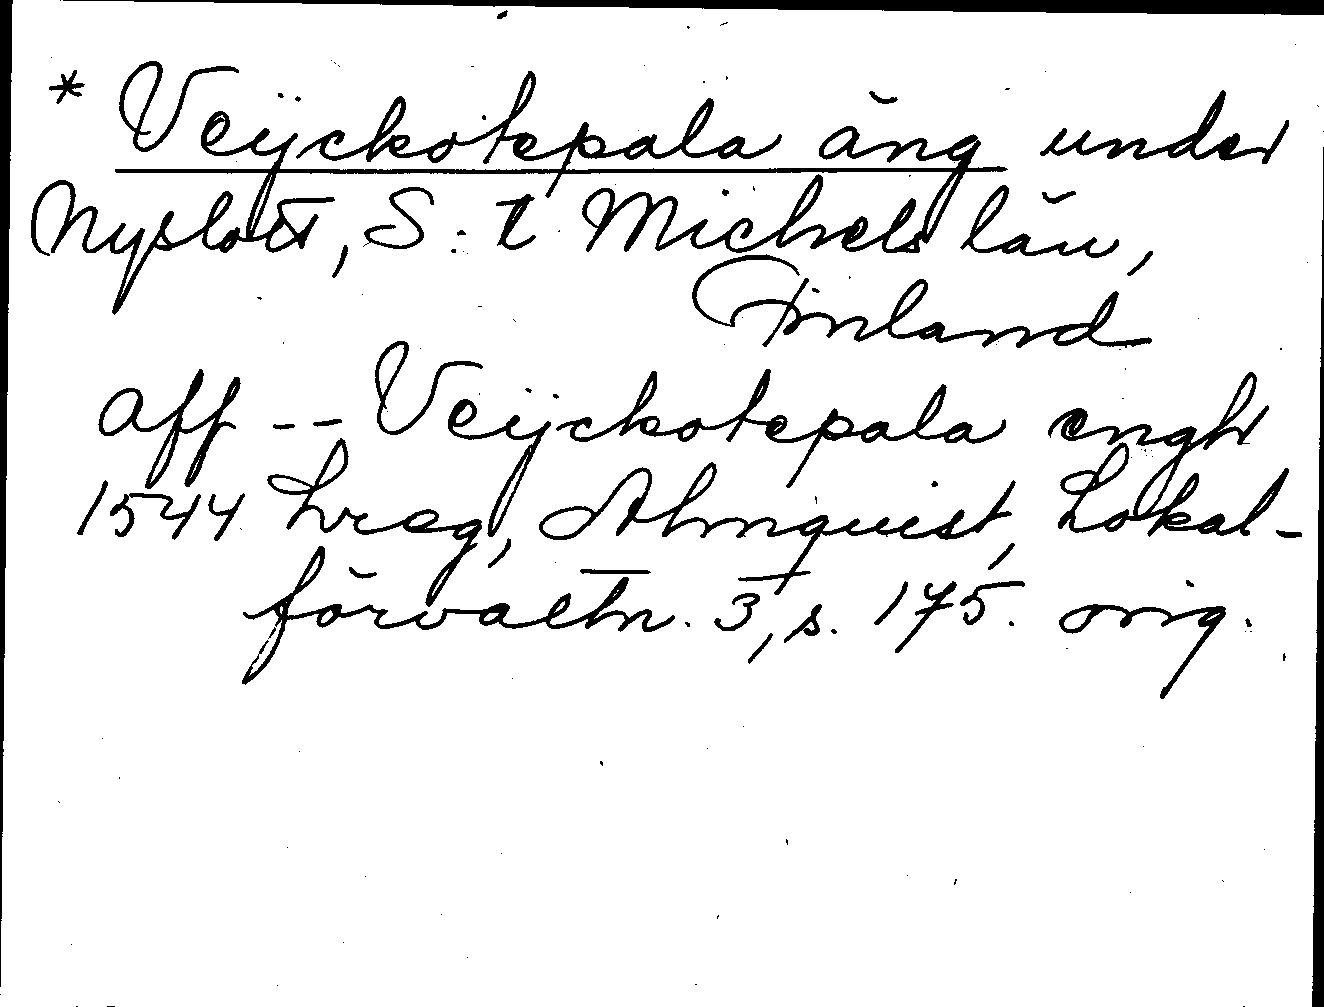 * Veijckotepala äng under
Nyslott, S:t Michels län,
Finland
aff -- Veijckotepala engh
1544 Lreg, Almquist, Lokal-
förvaltn. 3, s. 175. orig.